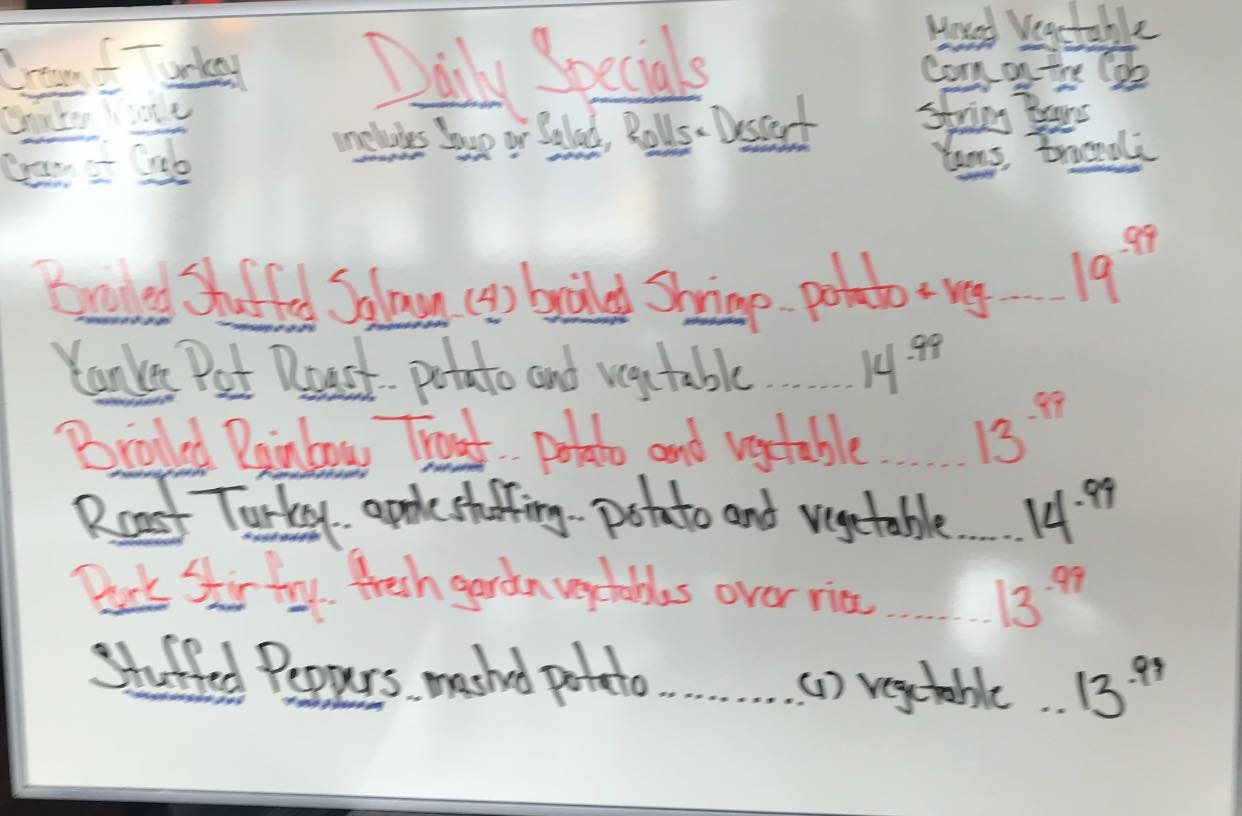 Cream of Turkey
Chicken Noodle
Cream of Crab
Daily Specials
includes Soup or Salad, Rolls & Dessert
Mixed Vegetable
Corn on the Cob
String Beans
Yams, Broccoli
Broiled Stuffed Salmon (4) broiled Shrimp.. potato + veg......19.99
Yankee Pot Roast.. potato and vegetable.......14.99
Broiled Rainbow Trout.. potato and vegetable.......13.99
Roast Turkey.. apple stuffing.. potato and vegetable......14.99
Pork Stir fry.. fresh garden vegetables over rice........13.99
Stuffed Peppers.. mashed potato...........(1) vegetable ..13.99